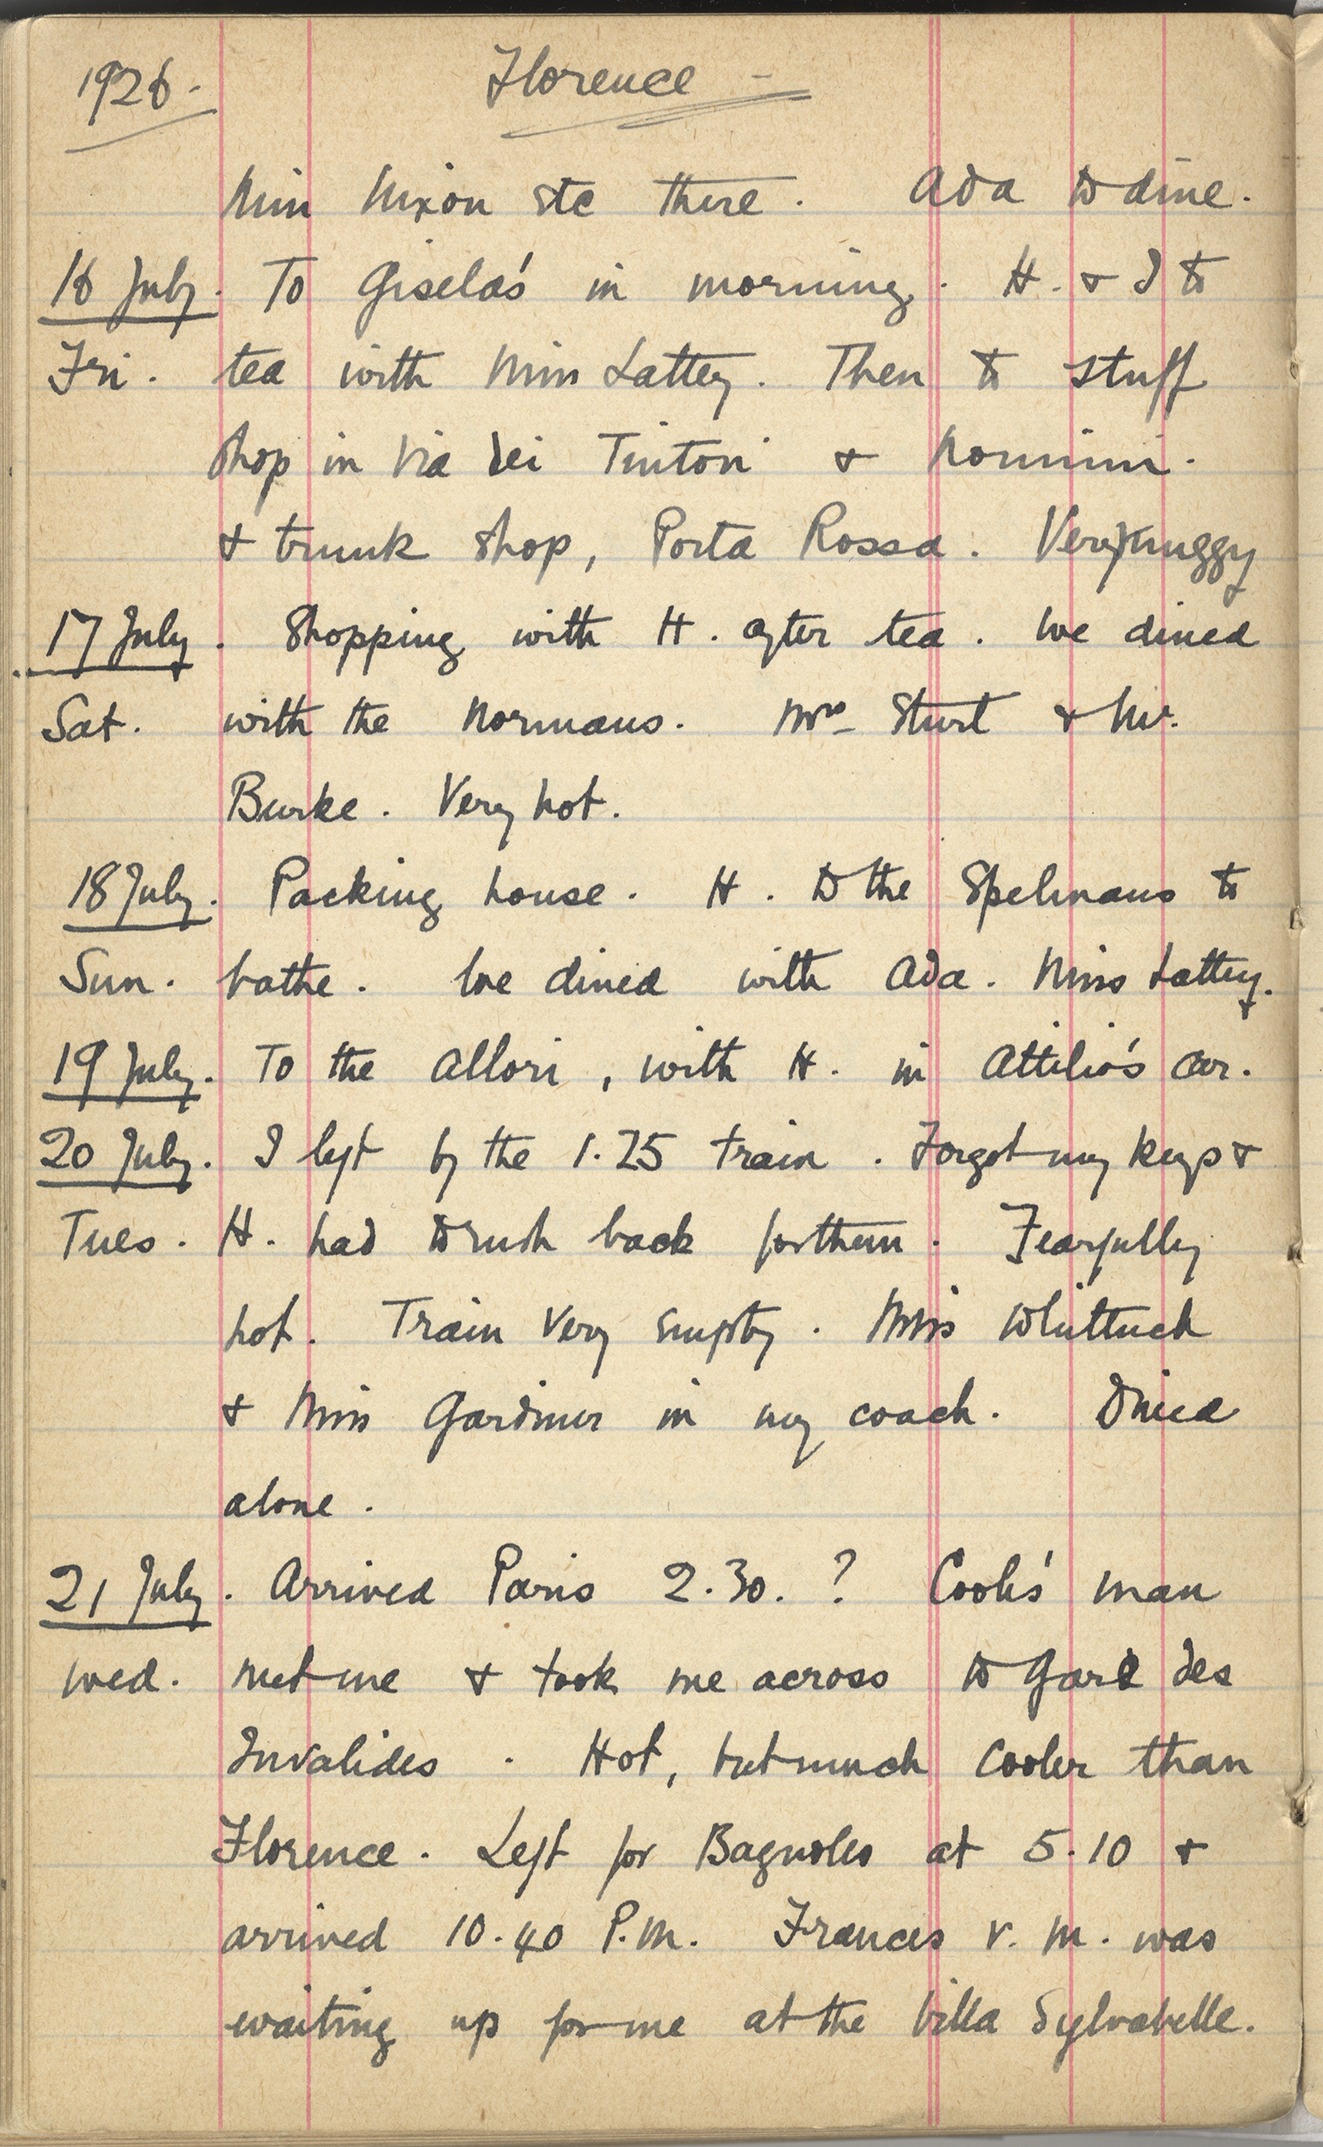 1926. Florence -
Miss Nixon etc there. Ada to dine.
16 July. To Gisela's in morning. H. & I to
Fri. tea with Miss Lattey. Then to stuff
shop in Via dei Tintori &
& trunk shop, Porta Rossa. Very muggy
17 July. Shopping with H. after tea. We dined
Sat. with the Normans. Mrs Sturt & Mr.
Burke. Very hot.
18 July. Packing house. H. to the Spelmans to
Sun. bathe. We dined with Ada. Miss Lattey.
19 July. To the Allori, with H. in Attilio's car.
20 July. I left by the 1.25 train. Forgot my keys &
Tues. H. had to rush back for them. Fearfully
hot. Train very empty. Miss Whittuck
& Miss Gardiner in my coach. Dined
alone.
21 July. Arrived Paris 2.30. ? Cook's man
Wed. met me & took me across to Gare des
Invalides. Hot, but much cooler than
Florence. Left for Bagnoles at 5.10 &
arrived 10.40 P.M. Frances v. M. was
waiting up for me at the Villa Sylvabelle.